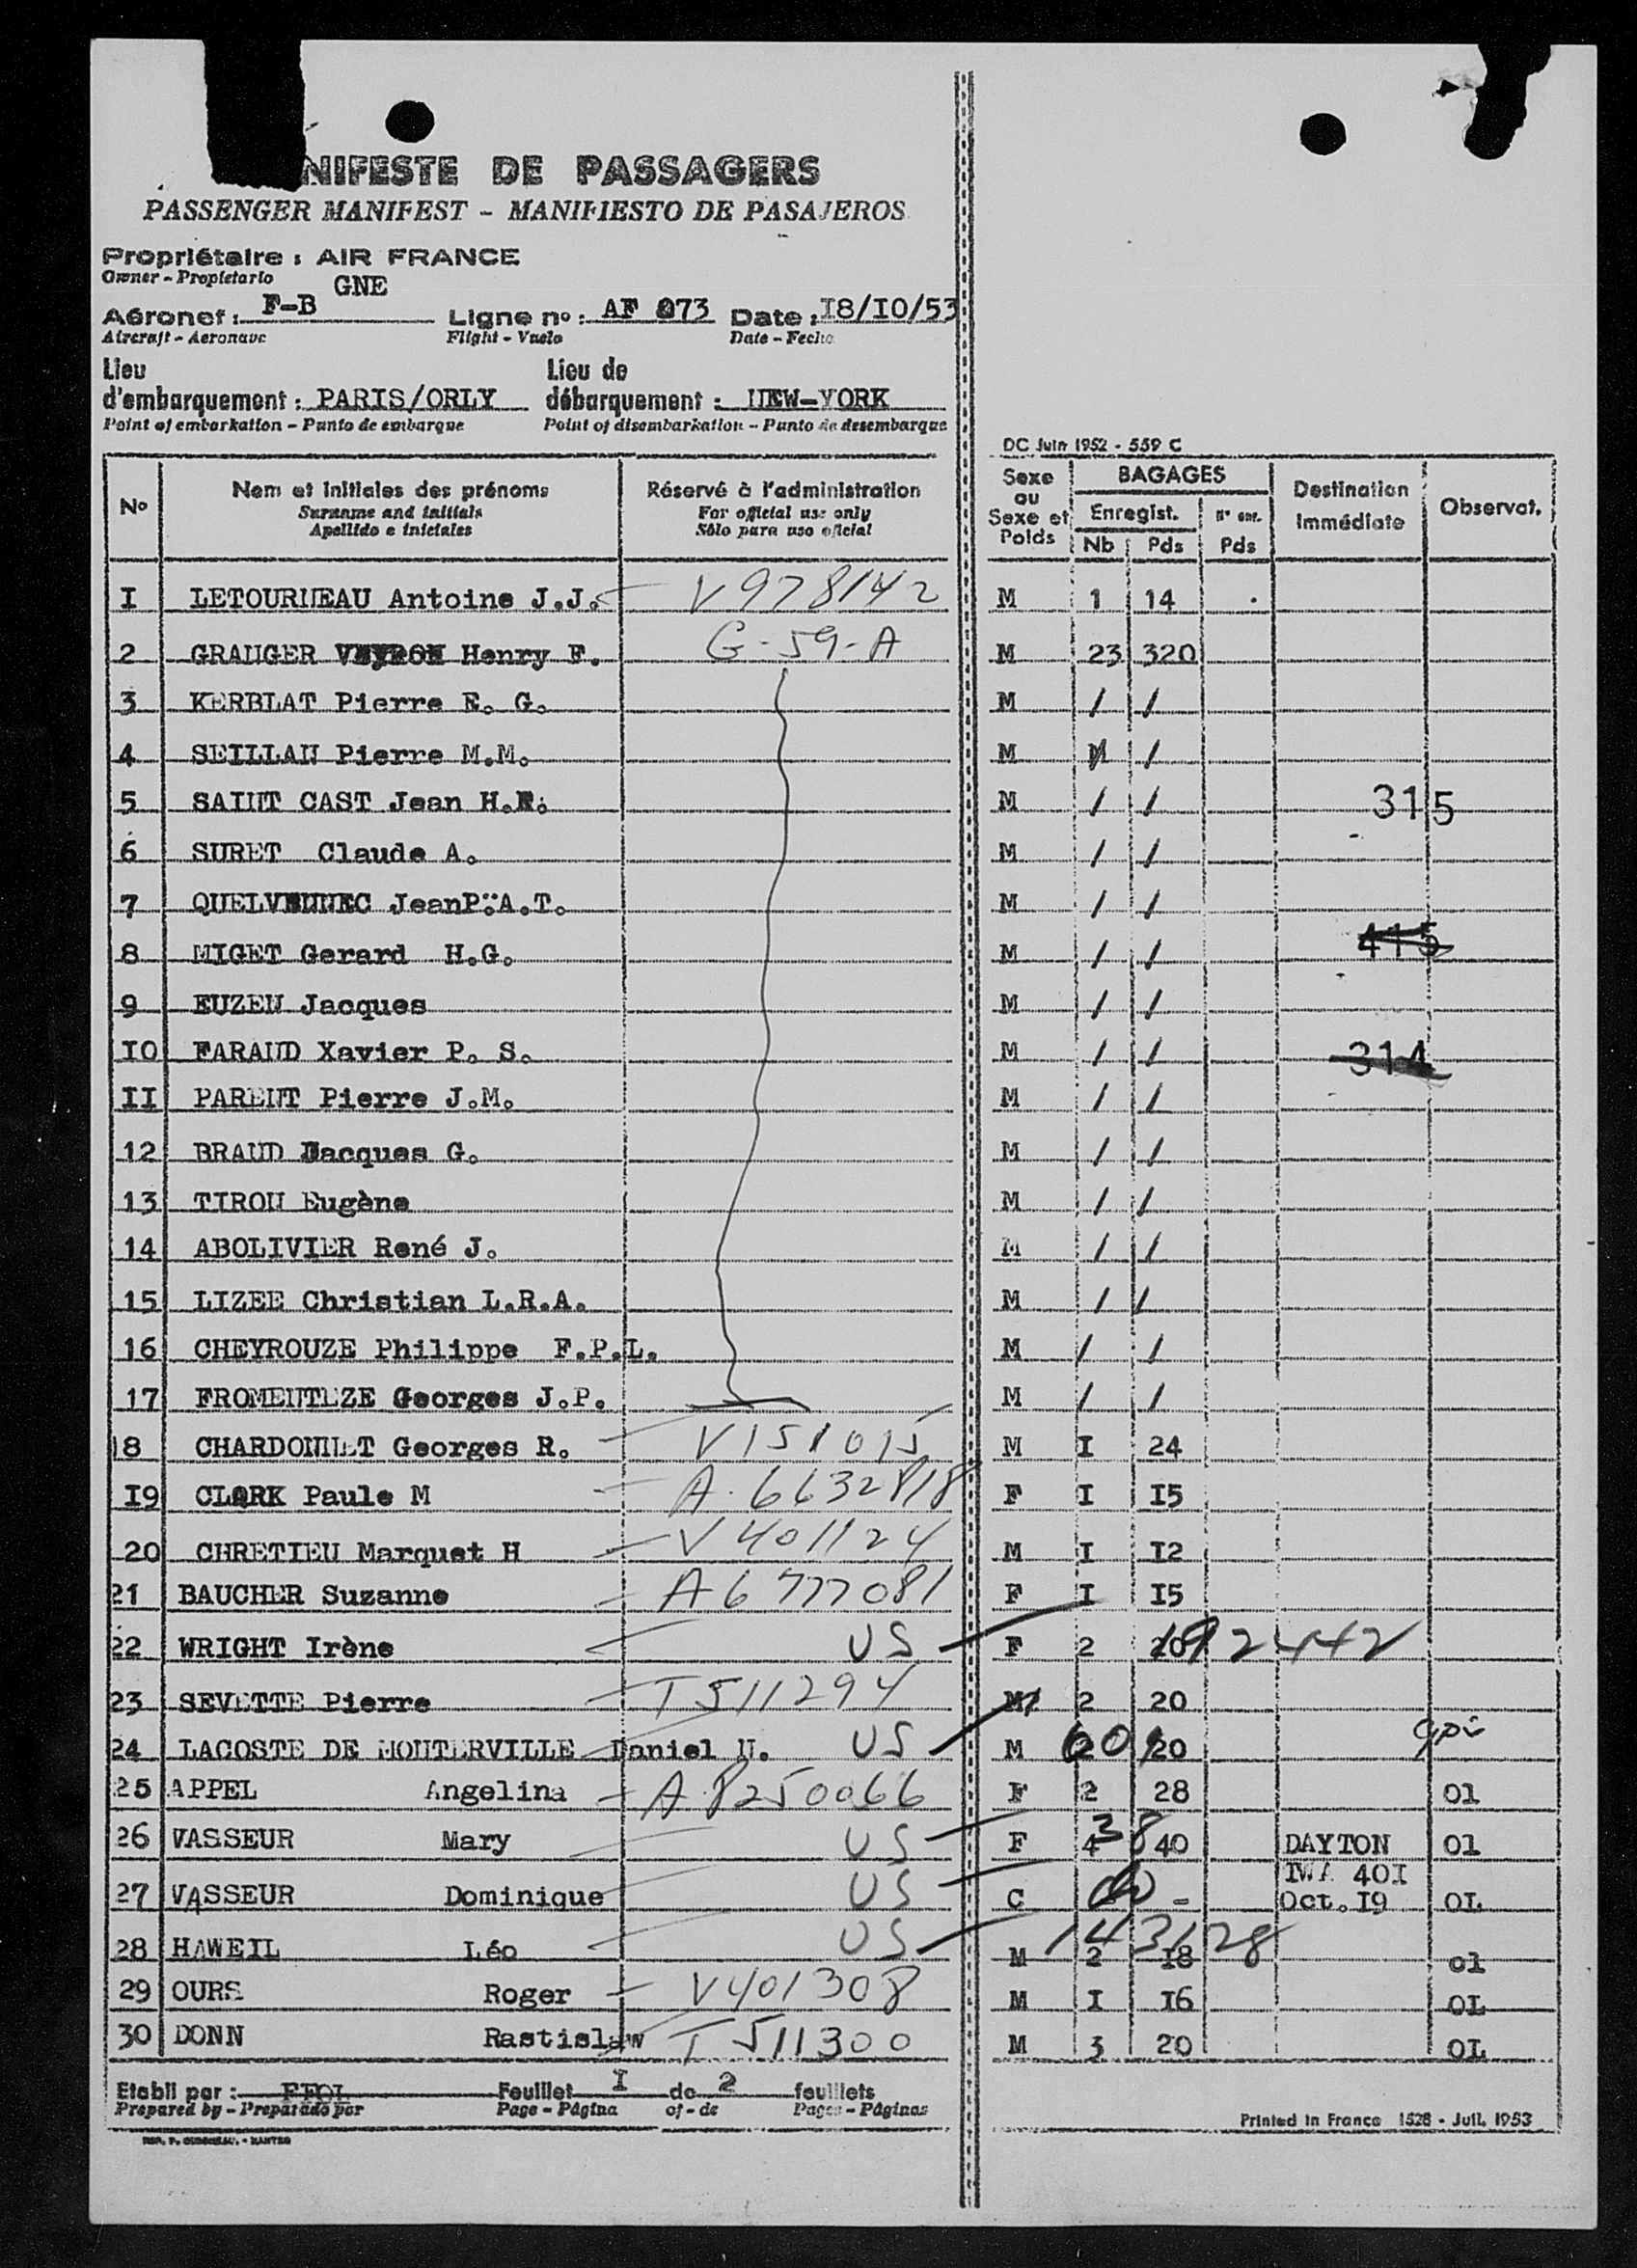 NIFESTE DE PASSAGERS
PASSENGER MANIFEST - MANIFIESTO DE PASAJEROS
Propriétaire : AIR FRANCE
Owner - Propietario
GNE
Aéronef : F-B Ligne no : AF 073 Date : I8/IO/53
Aircraft - Aeronave Flight - Vuelo Date - Fecha
Lieu Lieu de
d'embarquement : PARIS/ORLY débarquement : NEW-YORK
Point of embarkation - Punto de embarque Point of disembarkation - Punto de desembarque
DC Juin 1952 - 559 C
No Nom et initiales des prénoms Réservé à l'administration Sexe ou Sexe et Poids BAGAGES Destination Immédiate Observat.
Surname and initials For official use only Enregist. Nº enr.
Apellido e iniciales Sólo para uso oficial Nb Pds Pds
I LETOURNEAU Antoine J.J. V978142 M 1 14
2 GRANGER VEYRON Henry F. G-59-A M 23 320
3 KERBLAT Pierre E. G. M / /
4 SEILLAN Pierre M.M. M / /
5 SAINT CAST Jean H. M / / 315
6 SURET Claude A. M / /
7 QUELVENNEC JeanP.A.T. M / /
8 MIGET Gerard H.G. M / / 415
9 EUZEN Jacques M / /
IO FARAUD Xavier P. S. M / / 314
II PARENT Pierre J.M. M / /
12 BRAUD Jacques G. M / /
13 TIROU Eugène M / /
14 ABOLIVIER René J. M / /
15 LIZEE Christian L.R.A. M / /
16 CHEYROUZE Philippe F.P.L. M / /
17 FROMENTEZE Georges J.P. M / /
18 CHARDONNET Georges R. V151015 M I 24
I9 CLARK Paule M A. 6632818 F I I5
20 CHRETIEN Marquet H V401124 M I I2
21 BAUCHER Suzanne A6777081 F I I5
22 WRIGHT Irène US F 2 20
23 SEVETTE Pierre T511294 M 2 20
24 LACOSTE DE MONTERVILLE Daniel N. US M 20
25 APPEL Angelina A8250066 F 2 28 Ol
26 VASSEUR Mary US F 4 40 DAYTON Ol
TWA 40I
27 VASSEUR Dominique US C - Oct. I9 OL
28 HAWEIL Léo US M 2 18 ol
29 OURS Roger V401308 M I I6 OL
30 DONN Rastislaw T511300 M 3 20 OL
Etabli par : Feuillet I de 2 feuillets
Prepared by - Preparado por Page - Página of - de Pages - Páginas
Printed in France 1528 - Juil. 1953